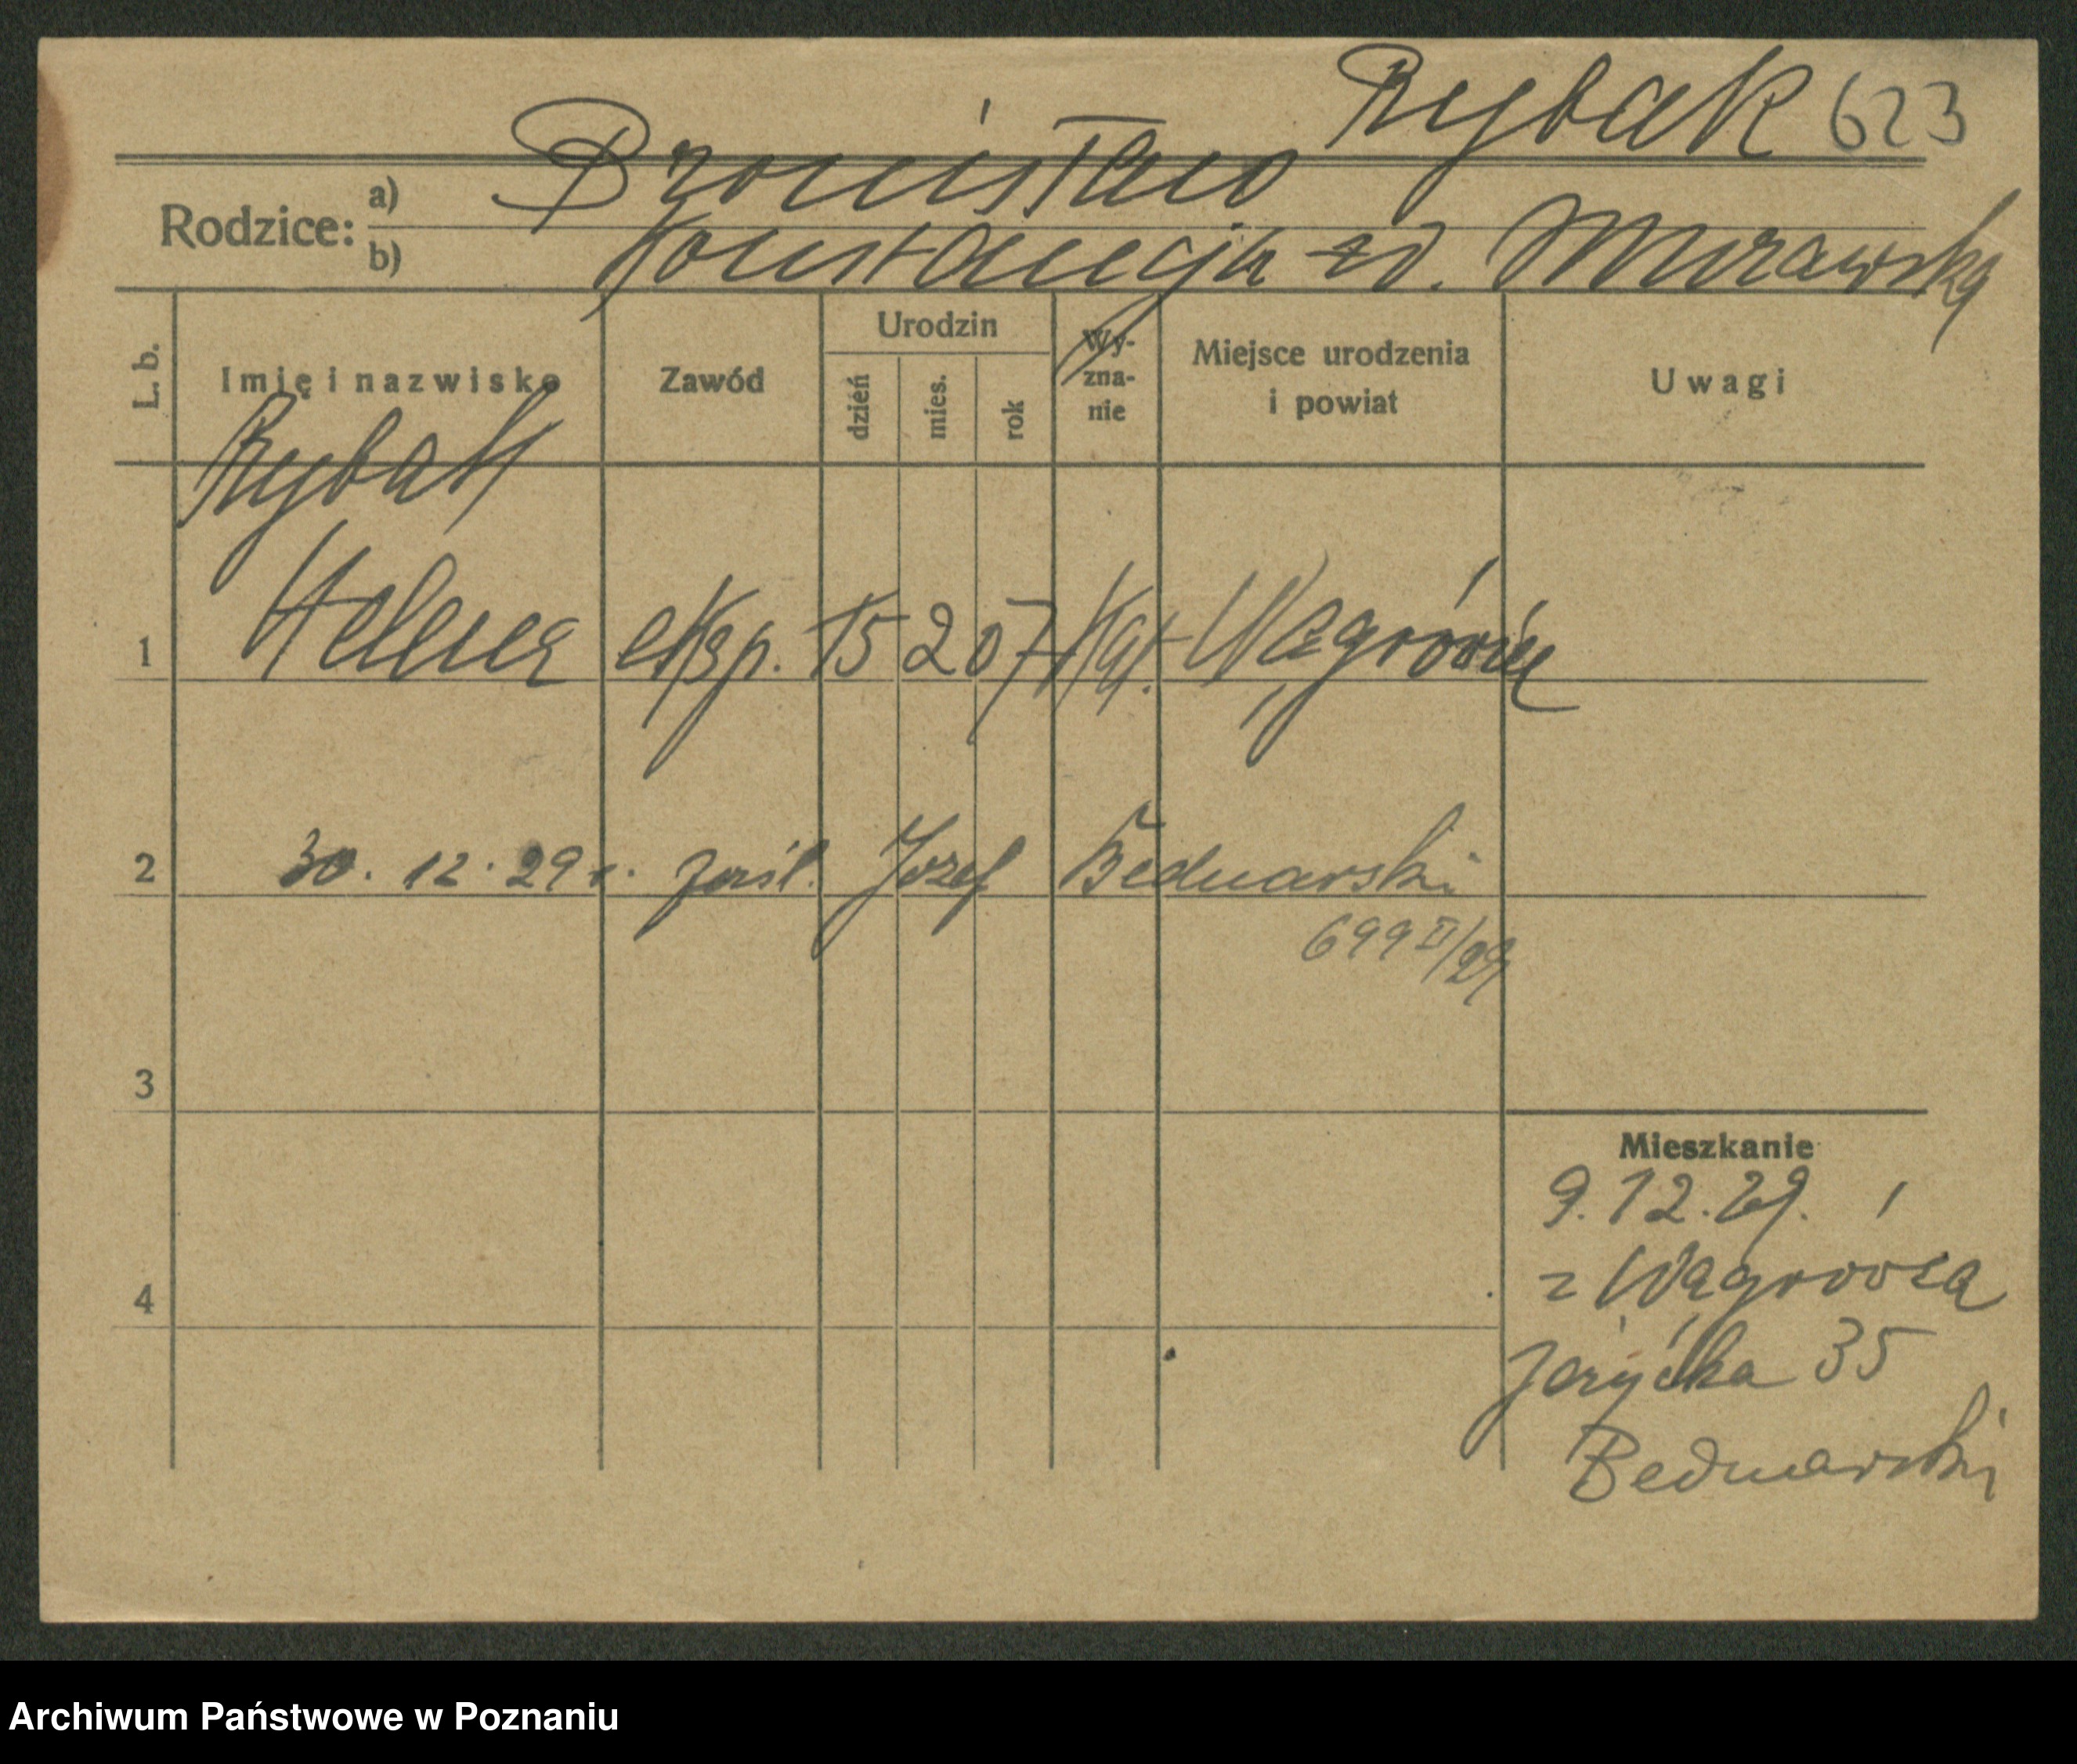 Rybak 623
Rodzice: a) Bronisław
b) Konstancja zd. Murawska
L. b. Imię i nazwisko Zawód Urodzin dzień mies. rok Wy-zna-nie Miejsce urodzenia i powiat Uwagi
Rybak
1 Helena eksp. 15 2 07 Kat. Wągrówiec
2 30. 12. 29 r. zaśl. Józef Bednarski
699 II/29
3
Mieszkanie
9.12.29.
z Wągrówca
4
Jeżycka 35
Bednarski
Archiwum Państwowe w Poznaniu